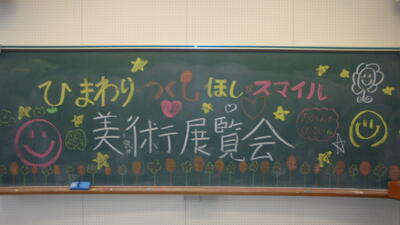 ひまわり つくし ほし スマイル
美術展覧会